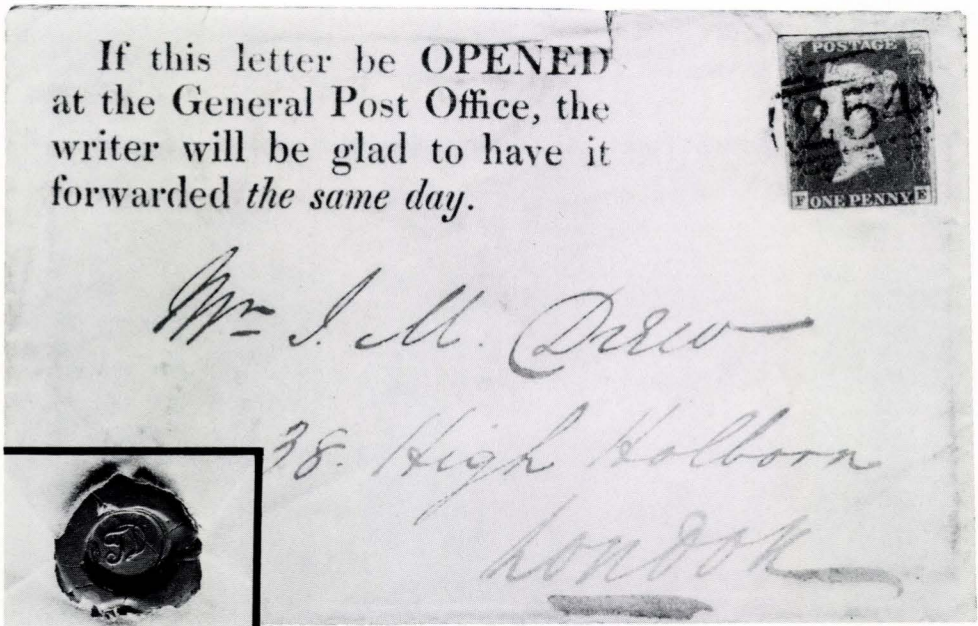 If this letter be OPENED
at the General Post Office, the
writer will be glad to have it
forwarded the same day.
POSTAGE
254
F ONE PENNY E
Mr. J. M. Drew
38. High Holborn
London